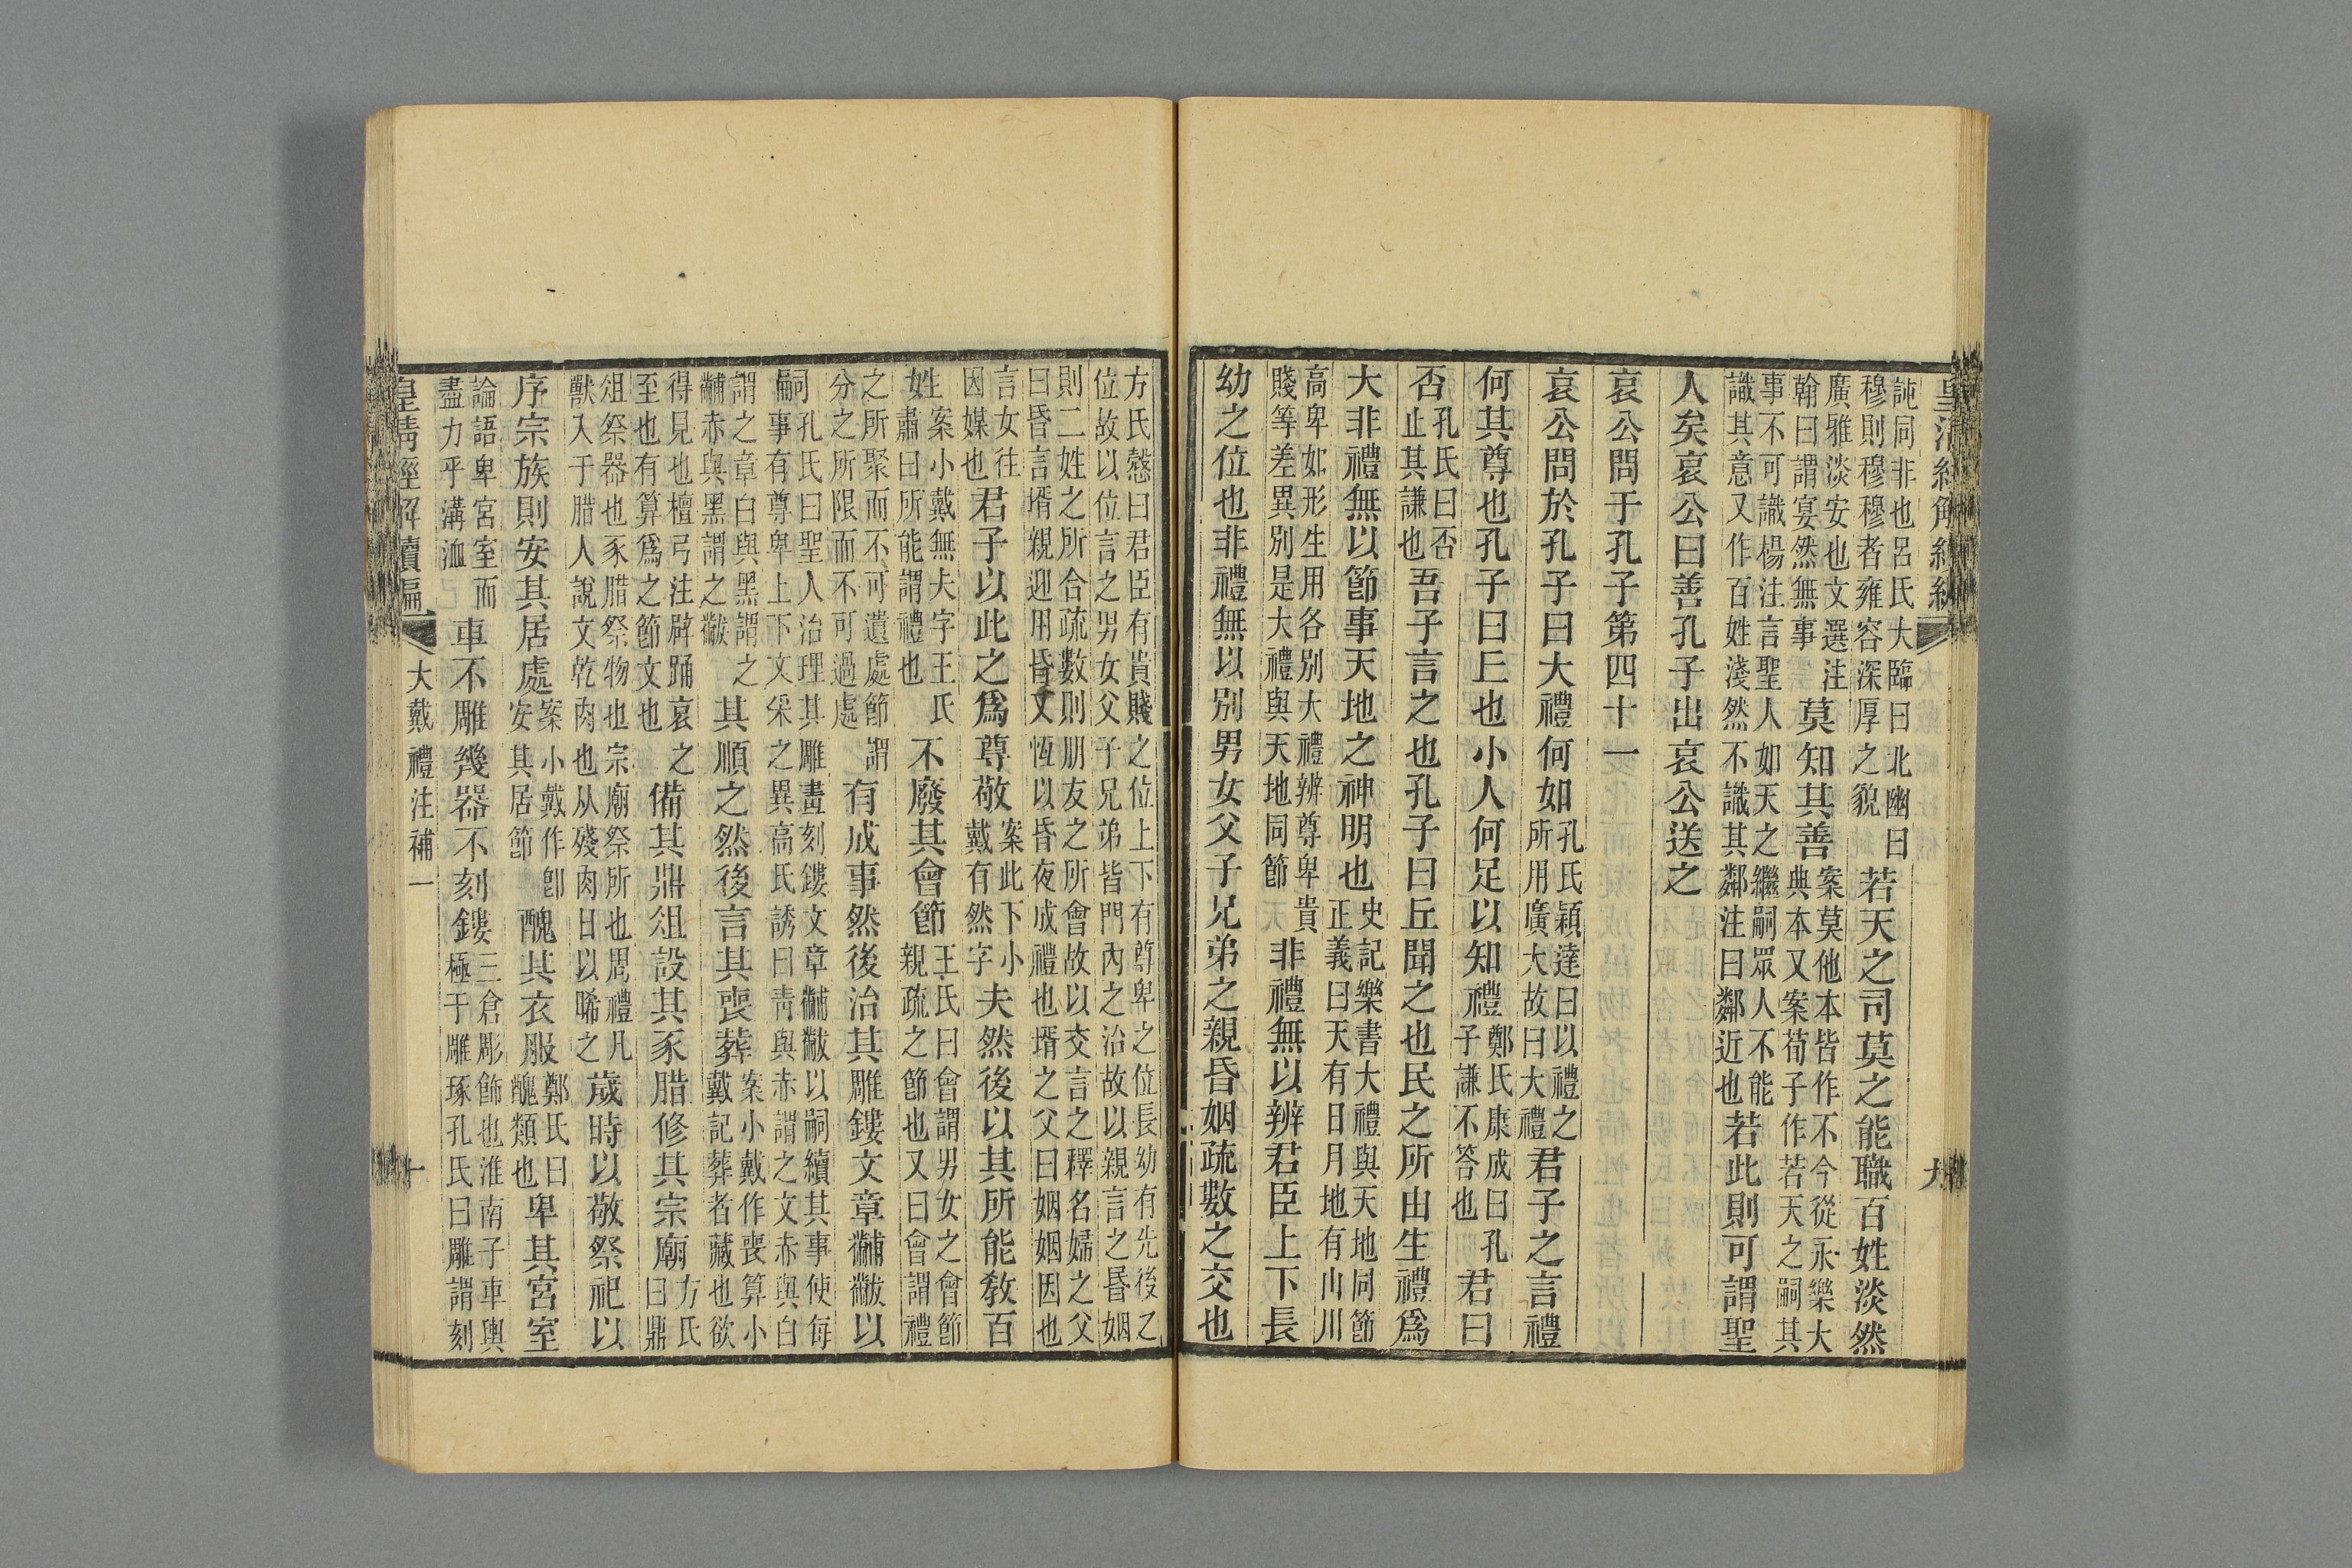 皇清經解續編 九
訰同非也呂氏大臨曰北幽曰穆則穆穆者雍容深厚之貌若天之司莫之能職百姓淡然
廣雅淡安也文選注翰曰謂宴然無事莫知其善案莫他本皆作不今從永樂大典本又案荀子作若天之嗣其
事不可識楊注言聖人如天之繼嗣眾人不能識其意又作百姓淺然不識其鄰注曰鄰近也若此則可謂聖
人矣哀公曰善孔子出哀公送之
哀公問于孔子第四十一
哀公問於孔子曰大禮何如孔氏穎達曰以禮之所用廣大故曰大禮君子之言禮
何其尊也孔子曰丘也小人何足以知禮鄭氏康成曰孔子謙不答也君曰
否孔氏曰否止其謙也吾子言之也孔子曰丘聞之也民之所由生禮爲
大非禮無以節事天地之神明也史記樂書大禮與天地同節正義曰天有日月地有山川
高卑如形生用各別大禮辨尊卑貴賤等差異別是大禮與天地同節天非禮無以辨君臣上下長
幼之位也非禮無以別男女父子兄弟之親昏姻疏數之交也
方氏慤曰君臣有貴賤之位上下有尊卑之位長幼有先後之位故以位言之男女父子兄弟皆門內之治故以親言之昏姻
則二姓之所合疏數則朋友之所會故以交言之釋名婦之父曰昏言壻親迎用昏又恆以昏夜成禮也壻之父曰姻姻因也
言女往因媒也君子以此之爲尊敬案此下小戴有然字夫然後以其所能教百
姓案小戴無夫字王氏肅曰所能謂禮也不廢其會節王氏曰會謂男女之會節親疏之節也又曰會謂禮
之所聚而不可遺處節謂分之所限而不可過處有成事然後治其雕鏤文章黼黻以
嗣孔氏曰聖人治理其雕畫刻鏤文章黼黻以嗣續其事使每事有尊卑上下文采之異高氏誘曰青與赤謂之文赤與白
謂之章白與黑謂之黼赤與黑謂之黻其順之然後言其喪葬案小戴作喪算小戴記葬者藏也欲
得見也檀弓注辟踊哀之至也有算爲之節文也備其鼎俎設其豕腊修其宗廟方氏曰鼎
俎祭器也豕腊祭物也宗廟祭所也周禮凡獸入于腊人說文乾肉也从殘肉日以晞之歲時以敬祭祀以
序宗族則安其居處案小戴作卽安其居節醜其衣服鄭氏曰醜類也卑其宮室
論語卑宮室而盡力乎溝洫車不雕幾器不刻鏤三倉彫飾也淮南子車輿極于雕琢孔氏曰雕謂刻
皇清經解續編 大戴禮注補一 十